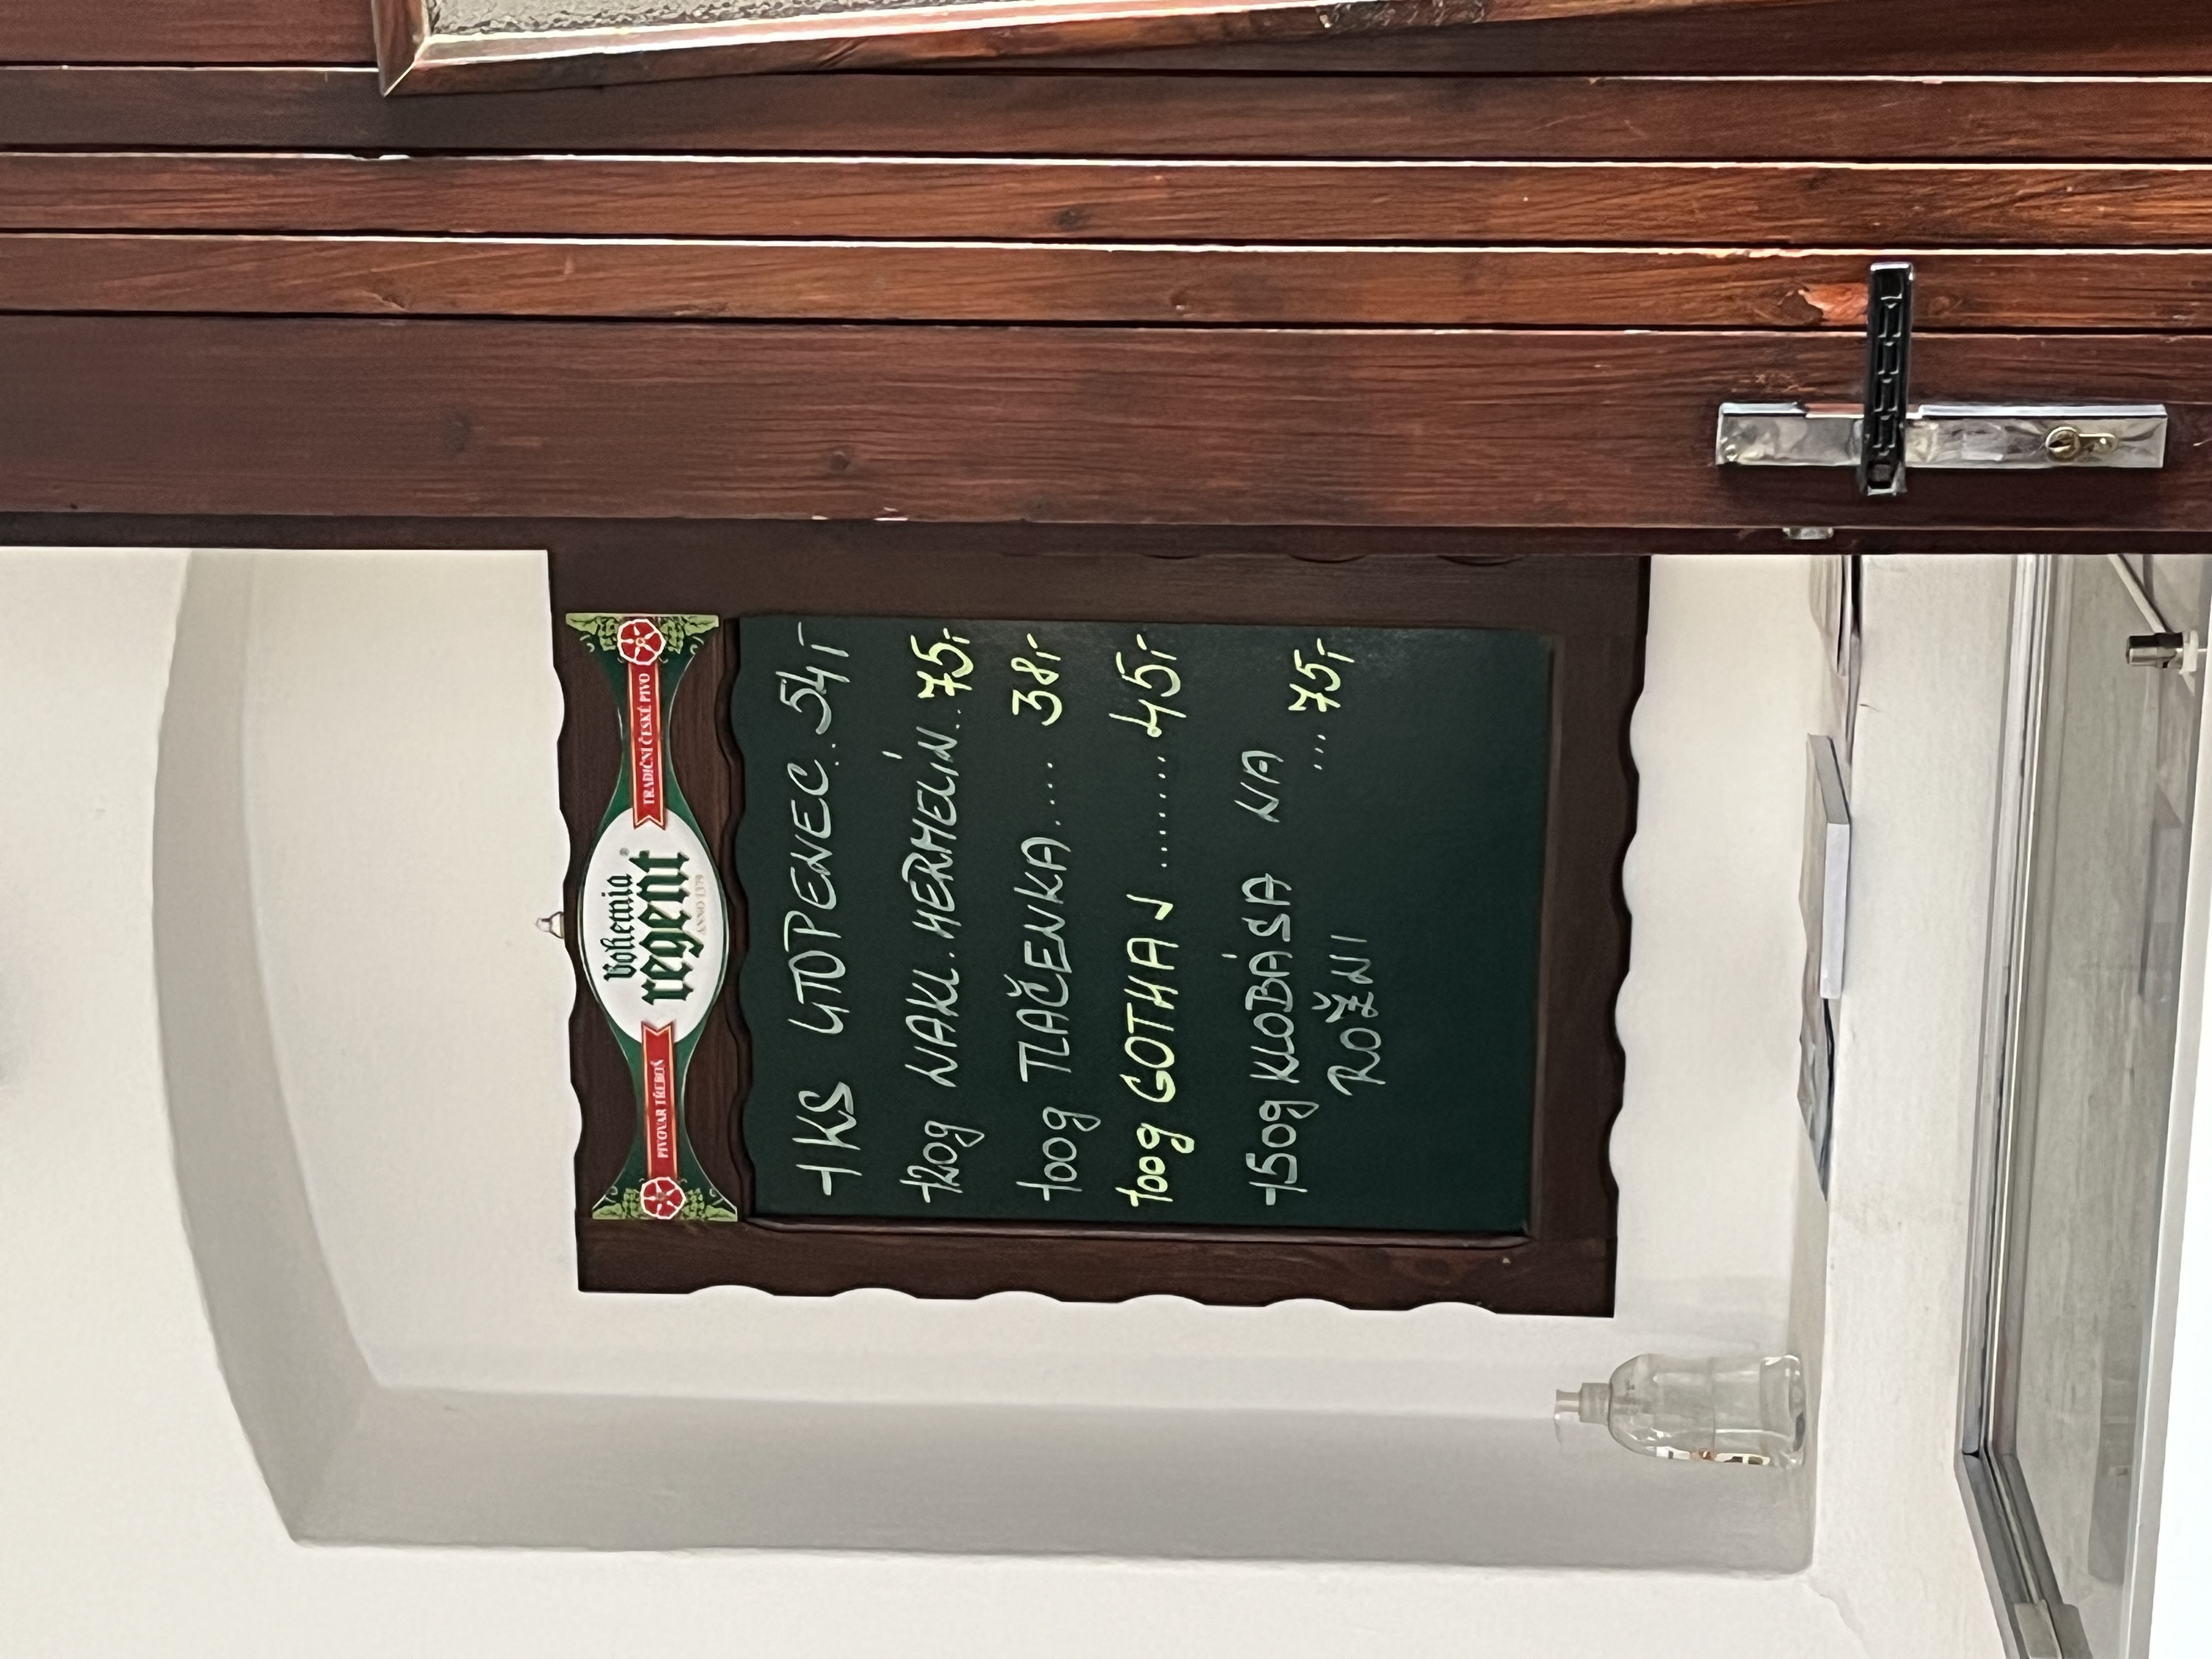 PIVOVAR TŘEBOŇ
bohemia
regent®
ANNO 1379
TRADIČNÍ ČESKÉ PIVO
1KS UTOPENEC. 54,-
120g NAKL. HERMELÍN.. 75,-
100g TLAČENKA.... 38,-
100g GOTHAJ ......... 45,-
150g KLOBÁSA NA
ROŽNI ... 75,-